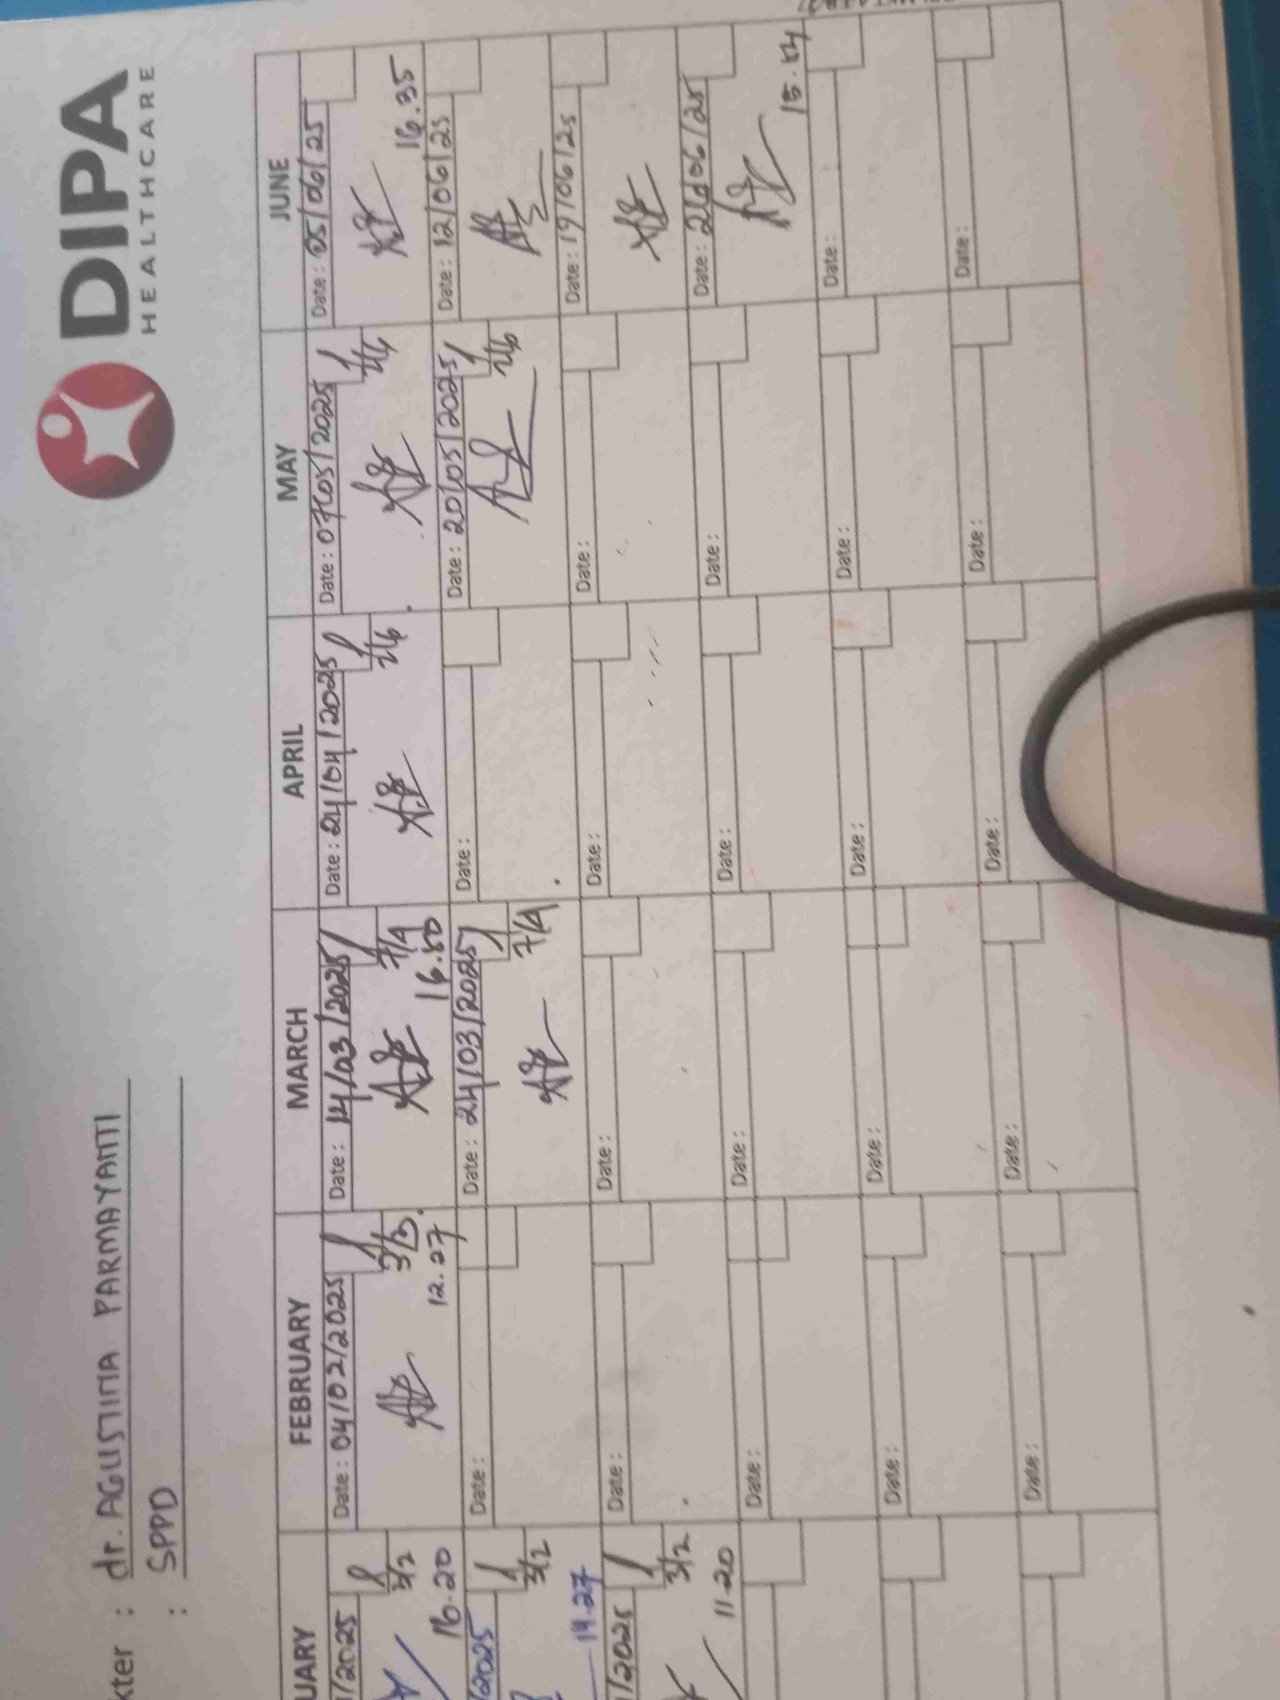 DIPA
HEALTHCARE
kter : dr. AGUSTINA PARMAYANTI
: SPPD
UARY FEBRUARY MARCH APRIL MAY JUNE
/2025 Date : 04/02/2025 Date : 14/03/2025 Date : 24/04/2025 Date : 07/05/2025 Date : 05/06/25
3/2 3/3. 7/4 2/6 2/6
16.20 12.27 16.50 16.35
/2025 Date : Date : 24/03/2025 Date : Date : 20/05/2025 Date : 12/06/25
3/2 7/4 2/6
14.27
/2025 Date : Date : Date : Date : Date : 19/06/25
3/2
11.20
Date : Date : Date : Date : Date :
15.54
Date : Date : Date : Date : Date :
Date : Date : Date : Date : Date :